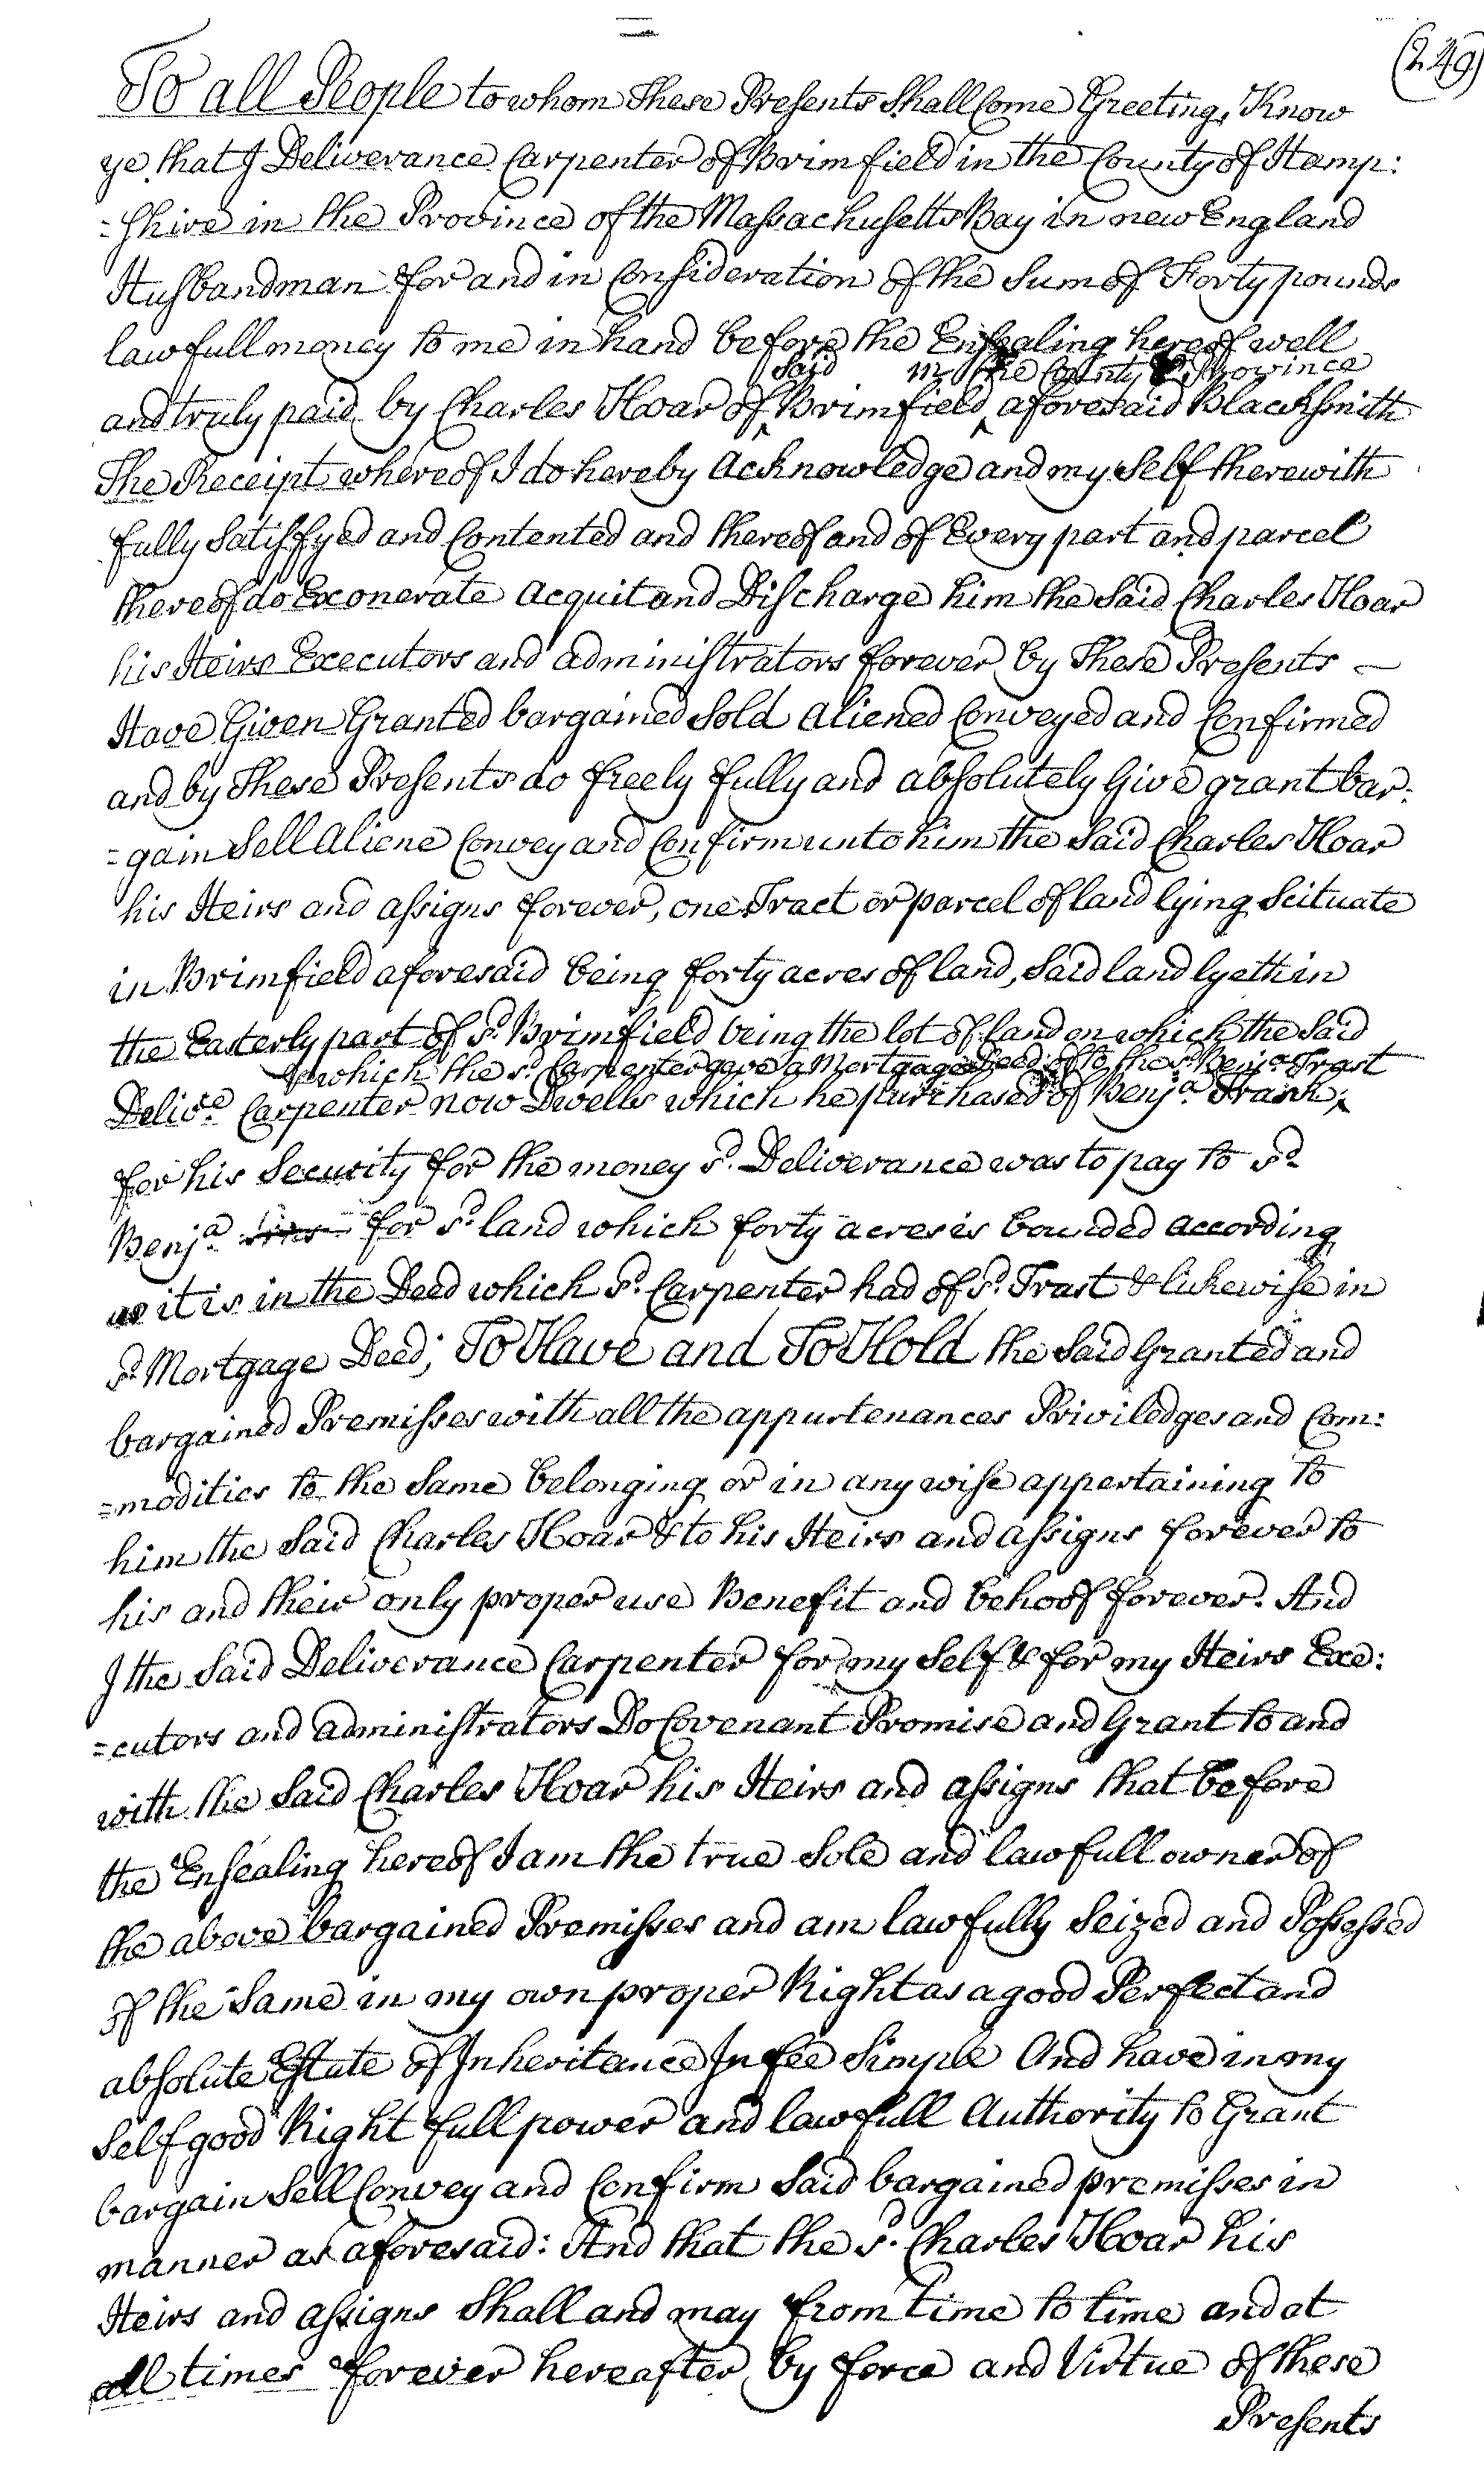 (249)
To all People to whom These Presents Shall Come Greeting, Know
ye that I Deliverance Carpenter of Brimfield in the County of Hamp:
=shire in the Province of the Massachusetts Bay in new England
Husbandman for and in Consideration of the Sum of Forty pounds
lawfull money to me in hand before the Ensealing hereof well
Said in the County & Province
and truly paid by Charles Hoar of ‸ Brimfield ‸ aforesaid Blacksmith
The Receipt whereof I do hereby Acknowledge and my Self therewith
fully Satisfyed and Contented and thereof and of Every part and parcel
thereof do Exonerate acquit and Discharge him the Said Charles Hoar
his Heirs Executors and administrators forever by These Presents —
Have Given Granted bargained Sold aliened Conveyed and Confirmed
and by These Presents do freely fully and absolutely Give grant bar:
=gain Sell Aliene Convey and Confirm unto him the Said Charles Hoar
his Heirs and assigns forever, one Tract or parcel of land lying Scituate
in Brimfield aforesaid being forty acres of land, Said land lyeth in
the Easterly part of sd. Brimfield being the lot of land on which the Said
& which the sd. Carpenter gave a Mortgage Deed of to the sd. Benja. Trast
Delivce. Carpenter now Dwells which he purchased of Benja. Trask; ‸
for his Security for the money sd. Deliverance was to pay to sd.
Benja. for sd. land which forty acres is bounded according
as it is in the Deed which sd. Carpenter had of sd. Trast & likewise in
sd. Mortgage Deed; To Have and To Hold the Said Granted and
bargained Premisses with all the appurtenances Priviledges and Com:
=modities to the Same belonging or in any wise appertaining to
him the Said Charles Hoar & to his Heirs and assigns forever to
his and their only proper use Benefit and behoof forever. And
I the Said Deliverance Carpenter for my Self & for my Heirs Exe:
=cutors and administrators Do Covenant Promise and Grant to and
with the Said Charles Hoar his Heirs and assigns that before
the Ensealing hereof I am the true Sole and lawfull owner of
the above bargained Premisses and am lawfully Seized and Possessed
of the Same in my own proper Right as a good Perfect and
absolute Estate of Inheritance In fee Simple And have in my
Self good Right full power and lawfull Authority to Grant
bargain Sell Convey and Confirm Said bargained premisses in
manner as aforesaid: And that the sd. Charles Hoar his
Heirs and assigns Shall and may from time to time and at
all times forever hereafter by force and Virtue of these
Presents